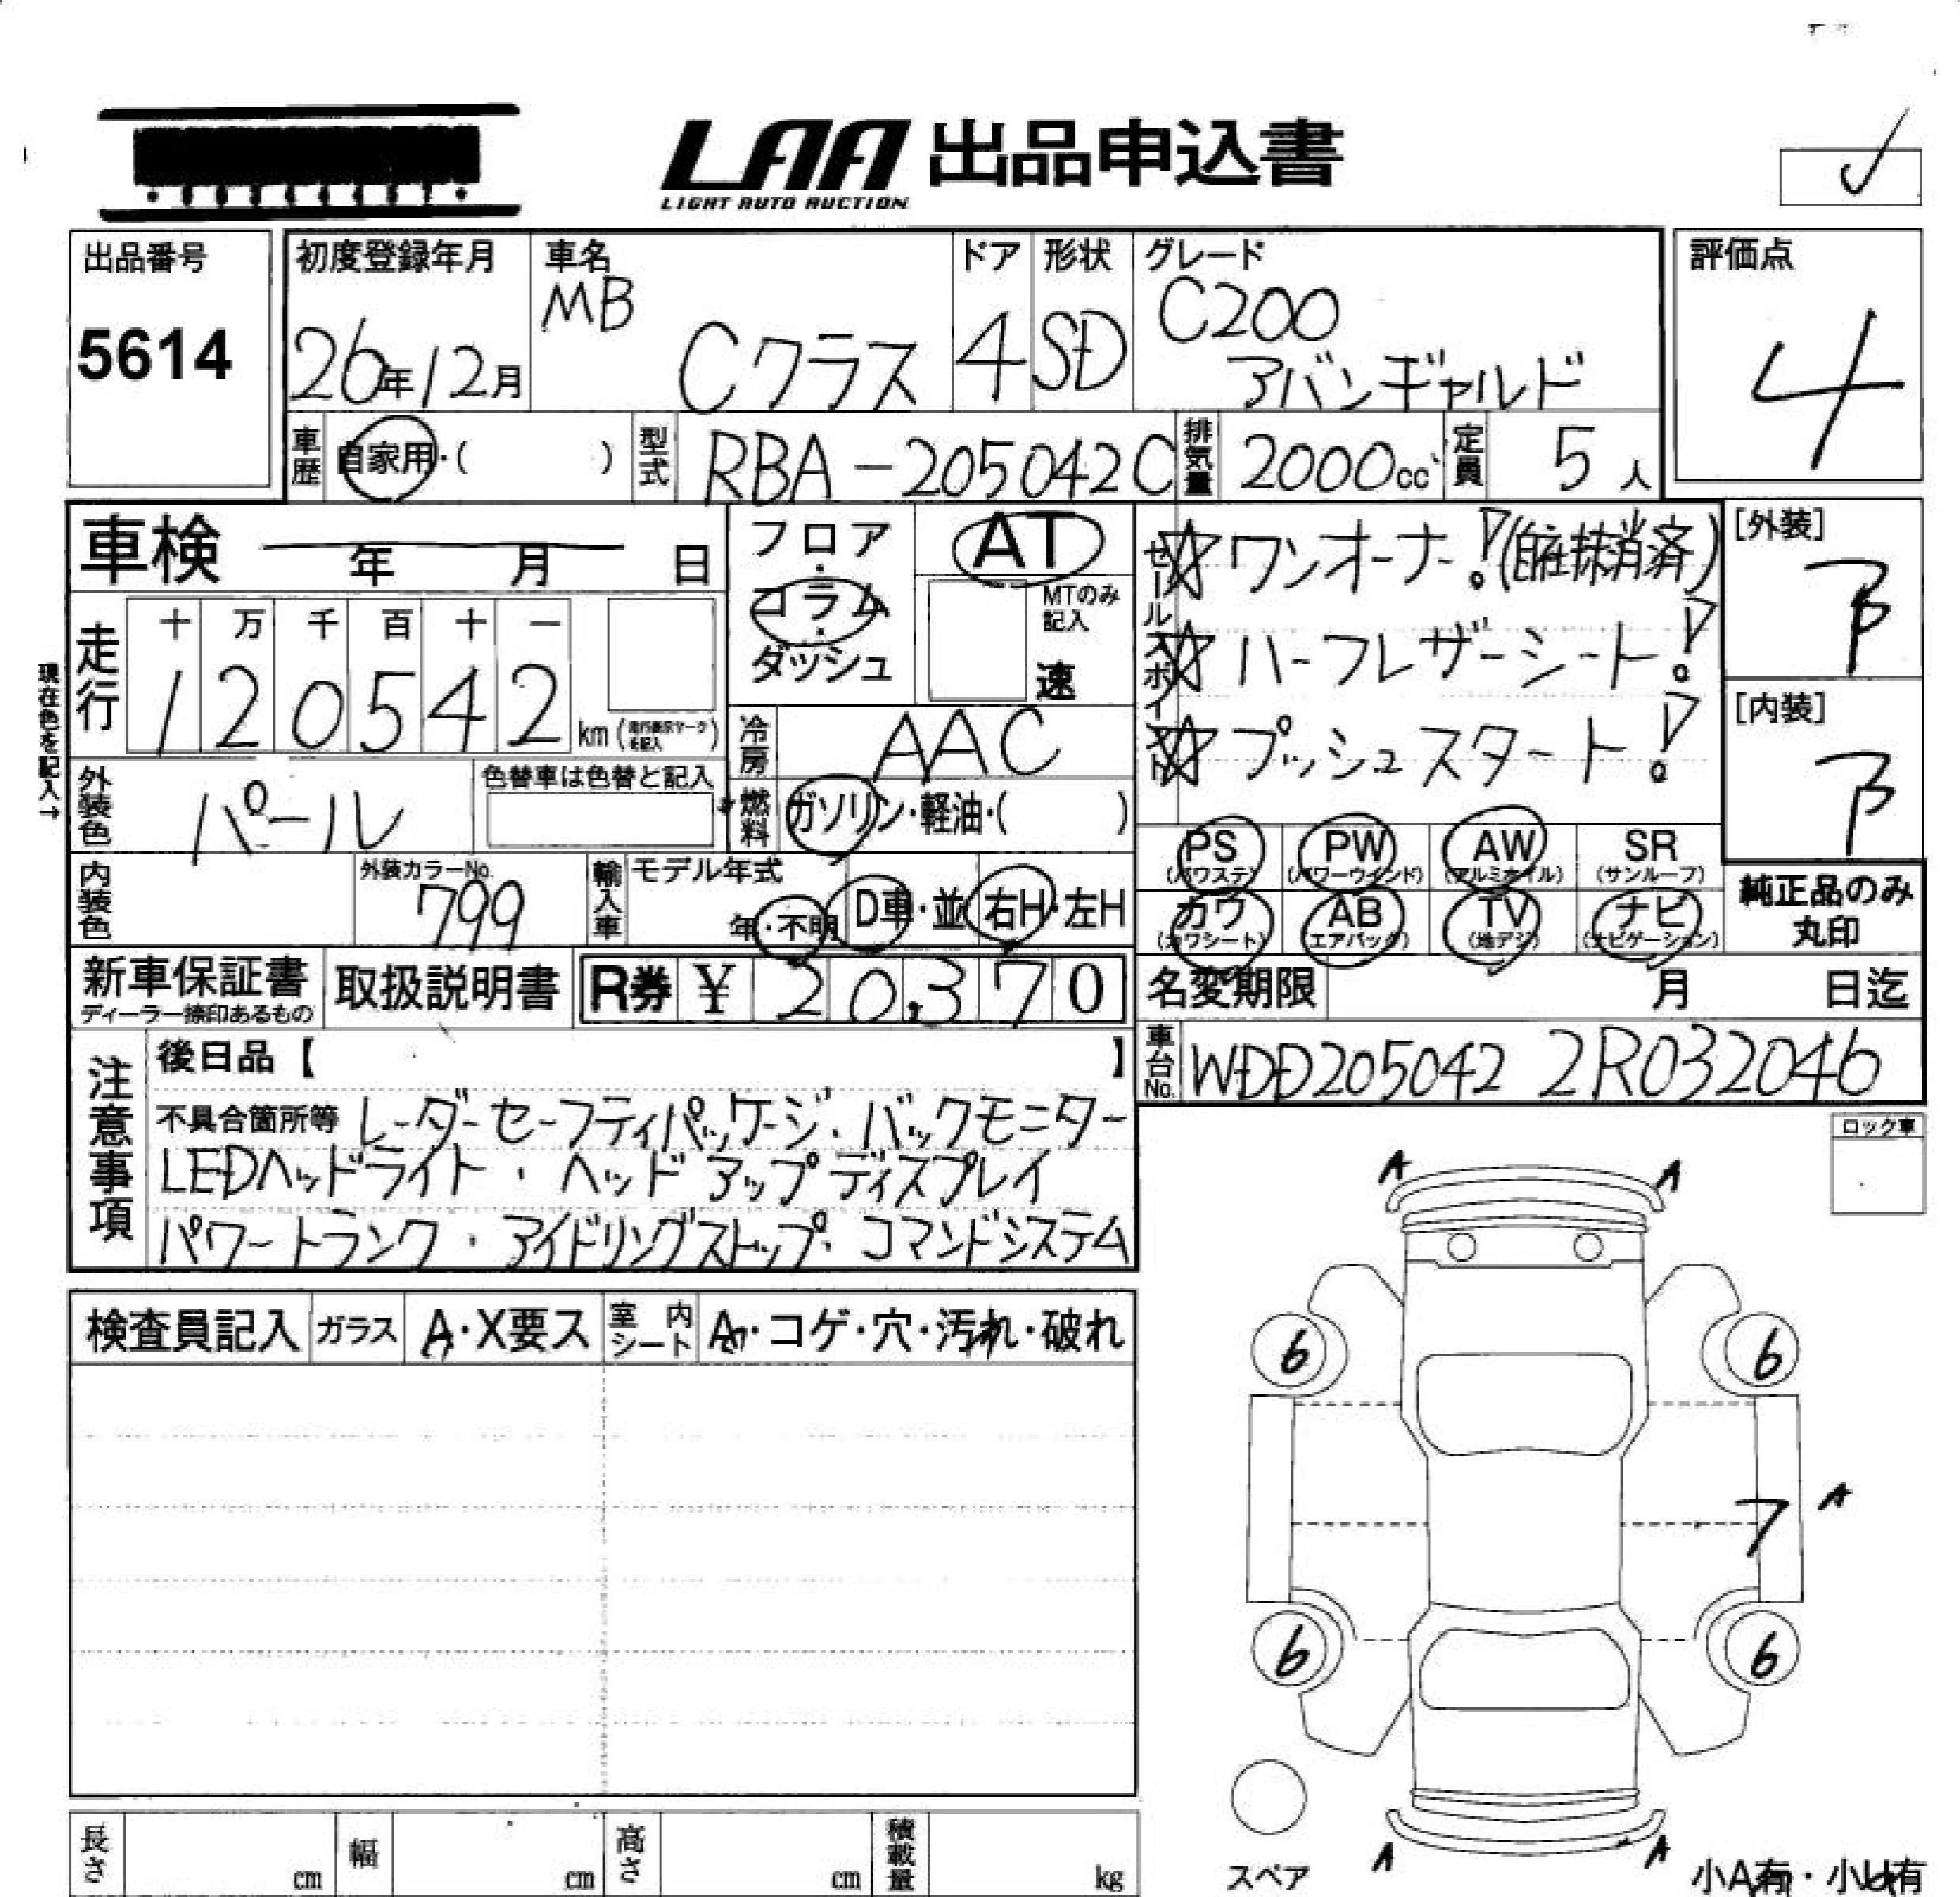 LAA 出品申込書
LIGHT AUTO AUCTION
出品番号
5614
初度登録年月
26年12月
車名
MB
Cクラス
ドア
4
形状
SD
グレード
C200
アバンギャルド
評価点
4
車歴 自家用・( )
型式 RBA-205042C
排気量 2000cc
定員 5人
車検 年 月 日
フロア・コラム・ダッシュ
AT
MTのみ記入
速
セールスポイント
☆ワンオーナー!(自主抹消済)
☆ハーフレザーシート!
☆プッシュスタート!
[外装]
B
[内装]
B
現在色を記入→
走行
十 万 千 百 十 一
1 2 0 5 4 2 km
冷房 AAC
外装色 パール
色替車は色替と記入
燃料 ガソリン・軽油・( )
PS (パワステ)
PW (パワーウインド)
AW (アルミホイル)
SR (サンルーフ)
カワ (カワシート)
AB (エアバッグ)
TV (地デジ)
ナビ (ナビゲーション)
純正品のみ
丸印
内装色
外装カラーNo.
799
輸入車
モデル年式
年・不明
D車・並
右H・左H
新車保証書
ディーラー捺印あるもの
取扱説明書
R券 ¥ 20,370
名変期限 月 日迄
車台No. WDD205042 2R032046
注意事項
後日品【 】
不具合箇所等 レーダーセーフティパッケージ・バックモニター
LEDヘッドライト・ヘッドアップディスプレイ
パワートランク・アイドリングストップ・コマンドシステム
ロック車
A A
検査員記入 ガラス A・X要ス 室内シート A・コゲ・穴・汚れ・破れ
6 6
7 A
6 6
A A
スペア
小A有・小U有
長さ cm 幅 cm 高さ cm 積載量 kg